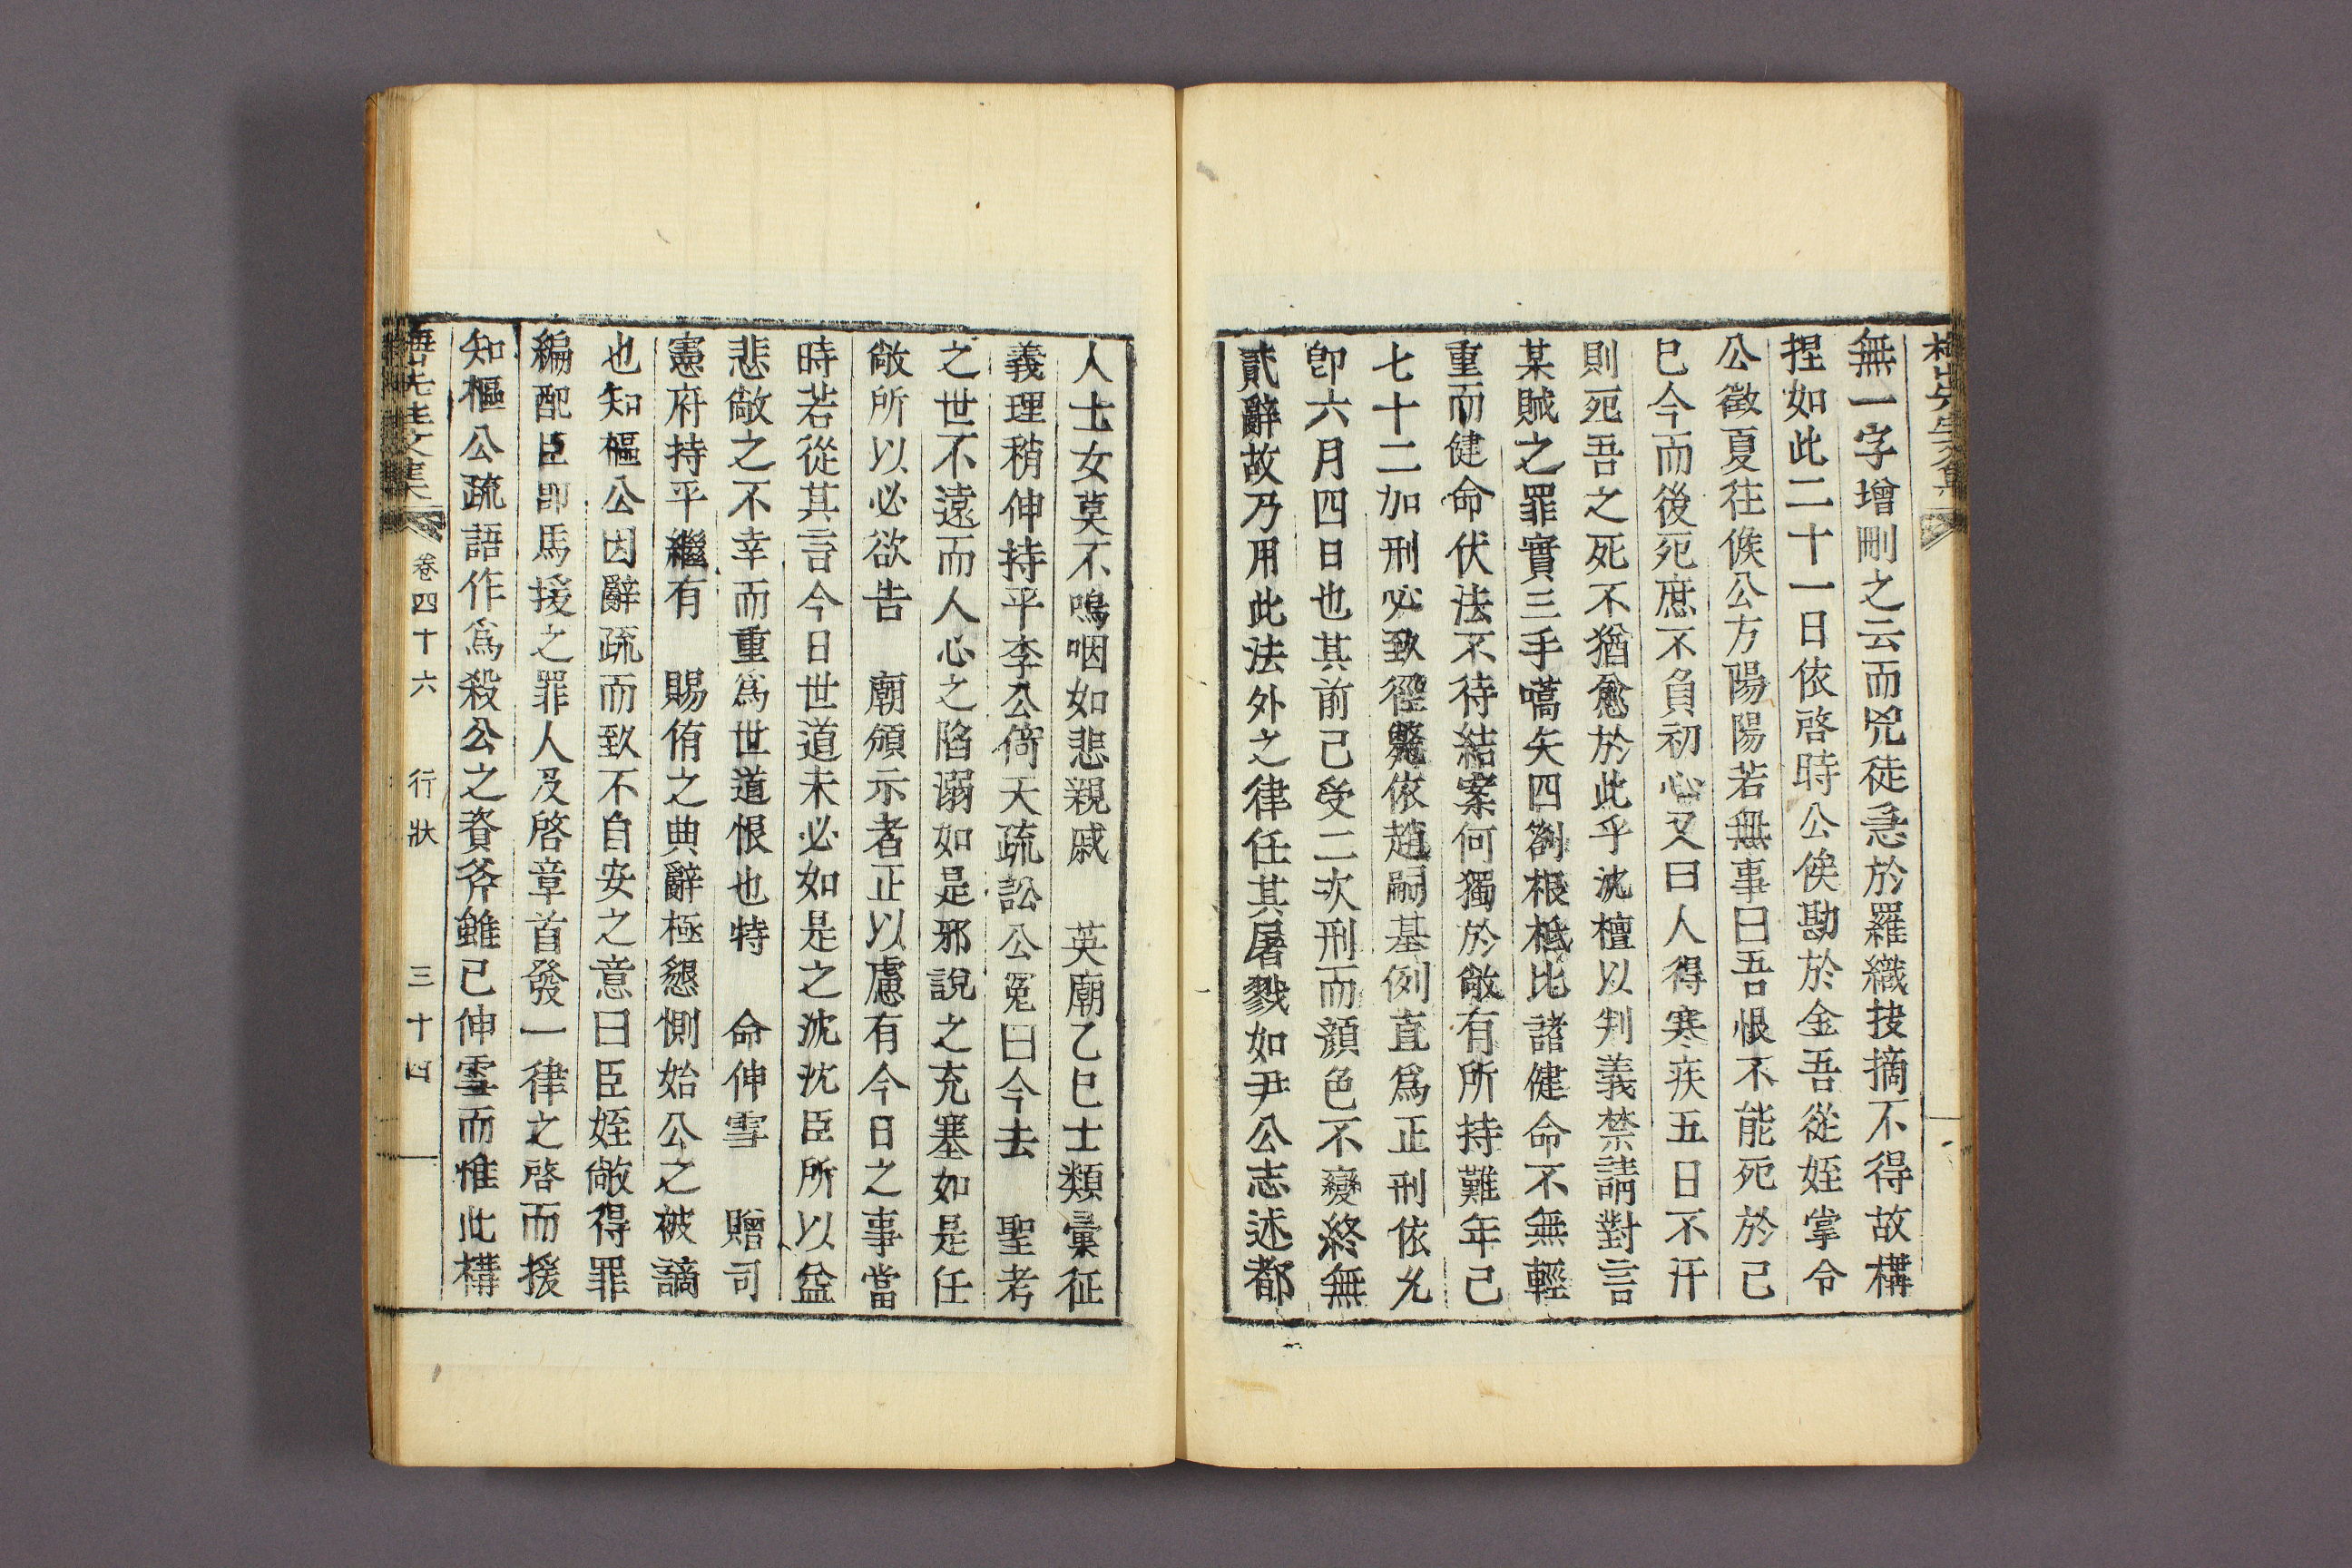 梅山先生文集
無一字增刪之云而兇徒急於羅織技摘不得故構
捏如此二十一日依啓時公俟勘於金吾從姪掌令
公徵夏往候公方陽陽若無事曰吾恨不能死於己
巳今而後死庶不負初心又曰人得寒疾五日不汗
則死吾之死不猶愈於此乎沈檀以判義禁請對言
某賊之罪實三手嚆矢四劄根柢比諸健命不無輕
重而健命伏法不待結案何獨於敞有所持難年已
七十二加刑必致徑斃依趙嗣基例直爲正刑依允
卽六月四日也其前已受二次刑而顔色不變終無
貳辭故乃用此法外之律任其屠戮如尹公志述都
人士女莫不嗚咽如悲親戚 英廟乙巳士類彙征
義理稍伸持平李公倚天疏訟公冤曰今去 聖考
之世不遠而人心之陷溺如是邪說之充塞如是任
敞所以必欲告 廟頒示者正以慮有今日之事當
時若從其言今日世道未必如是之沈沈臣所以益
悲敞之不幸而重爲世道恨也特 命伸雪 贈司
憲府持平繼有 賜侑之典辭極懇惻始公之被謫
也知樞公因辭疏而致不自安之意曰臣姪敞得罪
編配臣卽馬援之罪人及啓章首發一律之啓而援
知樞公疏語作爲殺公之資斧雖已伸雪而惟此構
梅山先生文集 卷四十六 行狀 三十四